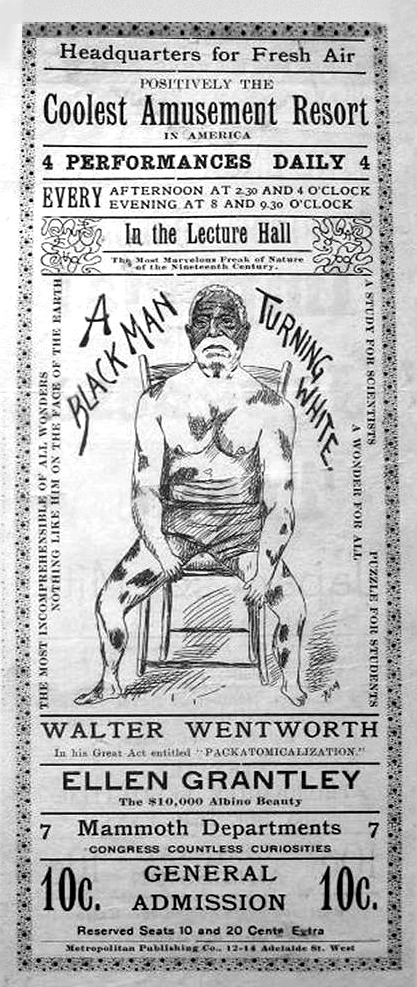 Headquarters for Fresh Air
POSITIVELY THE
Coolest Amusement Resort
IN AMERICA
4 PERFORMANCES DAILY 4
EVERY AFTERNOON AT 2.30 AND 4 O'CLOCK
EVENING AT 8 AND 9.30 O'CLOCK
In the Lecture Hall
The Most Marvelous Freak of Nature
of the Nineteenth Century.
A BLACK MAN
TURNING WHITE.
THE MOST INCOMPREHENSIBLE OF ALL WONDERS
NOTHING LIKE HIM ON THE FACE OF THE EARTH
A STUDY FOR SCIENTISTS
A WONDER FOR ALL
PUZZLE FOR STUDENTS
WALTER WENTWORTH
In his Great Act entitled "PACKATOMICALIZATION."
ELLEN GRANTLEY
The $10,000 Albino Beauty
7 Mammoth Departments 7
CONGRESS COUNTLESS CURIOSITIES
10c. GENERAL ADMISSION 10c.
Reserved Seats 10 and 20 Cents Extra
Metropolitan Publishing Co., 12-14 Adelaide St. West